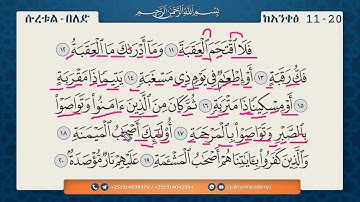 ሱረቱል - በለድ
بِسْمِ ٱللَّهِ ٱلرَّحْمَٰنِ ٱلرَّحِيمِ
ከአንቀፅ 11-20
فَلَا ٱقْتَحَمَ ٱلْعَقَبَةَ ١١ وَمَآ أَدْرَىٰكَ مَا ٱلْعَقَبَةُ ١٢
فَكُّ رَقَبَةٍ ١٣ أَوْ إِطْعَٰمٌ فِى يَوْمٍ ذِى مَسْغَبَةٍ ١٤ يَتِيمًا ذَا مَقْرَبَةٍ
١٥ أَوْ مِسْكِينًا ذَا مَتْرَبَةٍ ١٦ ثُمَّ كَانَ مِنَ ٱلَّذِينَ ءَامَنُوا۟ وَتَوَاصَوْا۟
بِٱلصَّبْرِ وَتَوَاصَوْا۟ بِٱلْمَرْحَمَةِ ١٧ أُو۟لَٰٓئِكَ أَصْحَٰبُ ٱلْمَيْمَنَةِ ١٨
وَٱلَّذِينَ كَفَرُوا۟ بِـَٔايَٰتِنَا هُمْ أَصْحَٰبُ ٱلْمَشْـَٔمَةِ ١٩ عَلَيْهِمْ نَارٌ مُّؤْصَدَةٌۢ ٢٠
+251914098979 / +251914042804